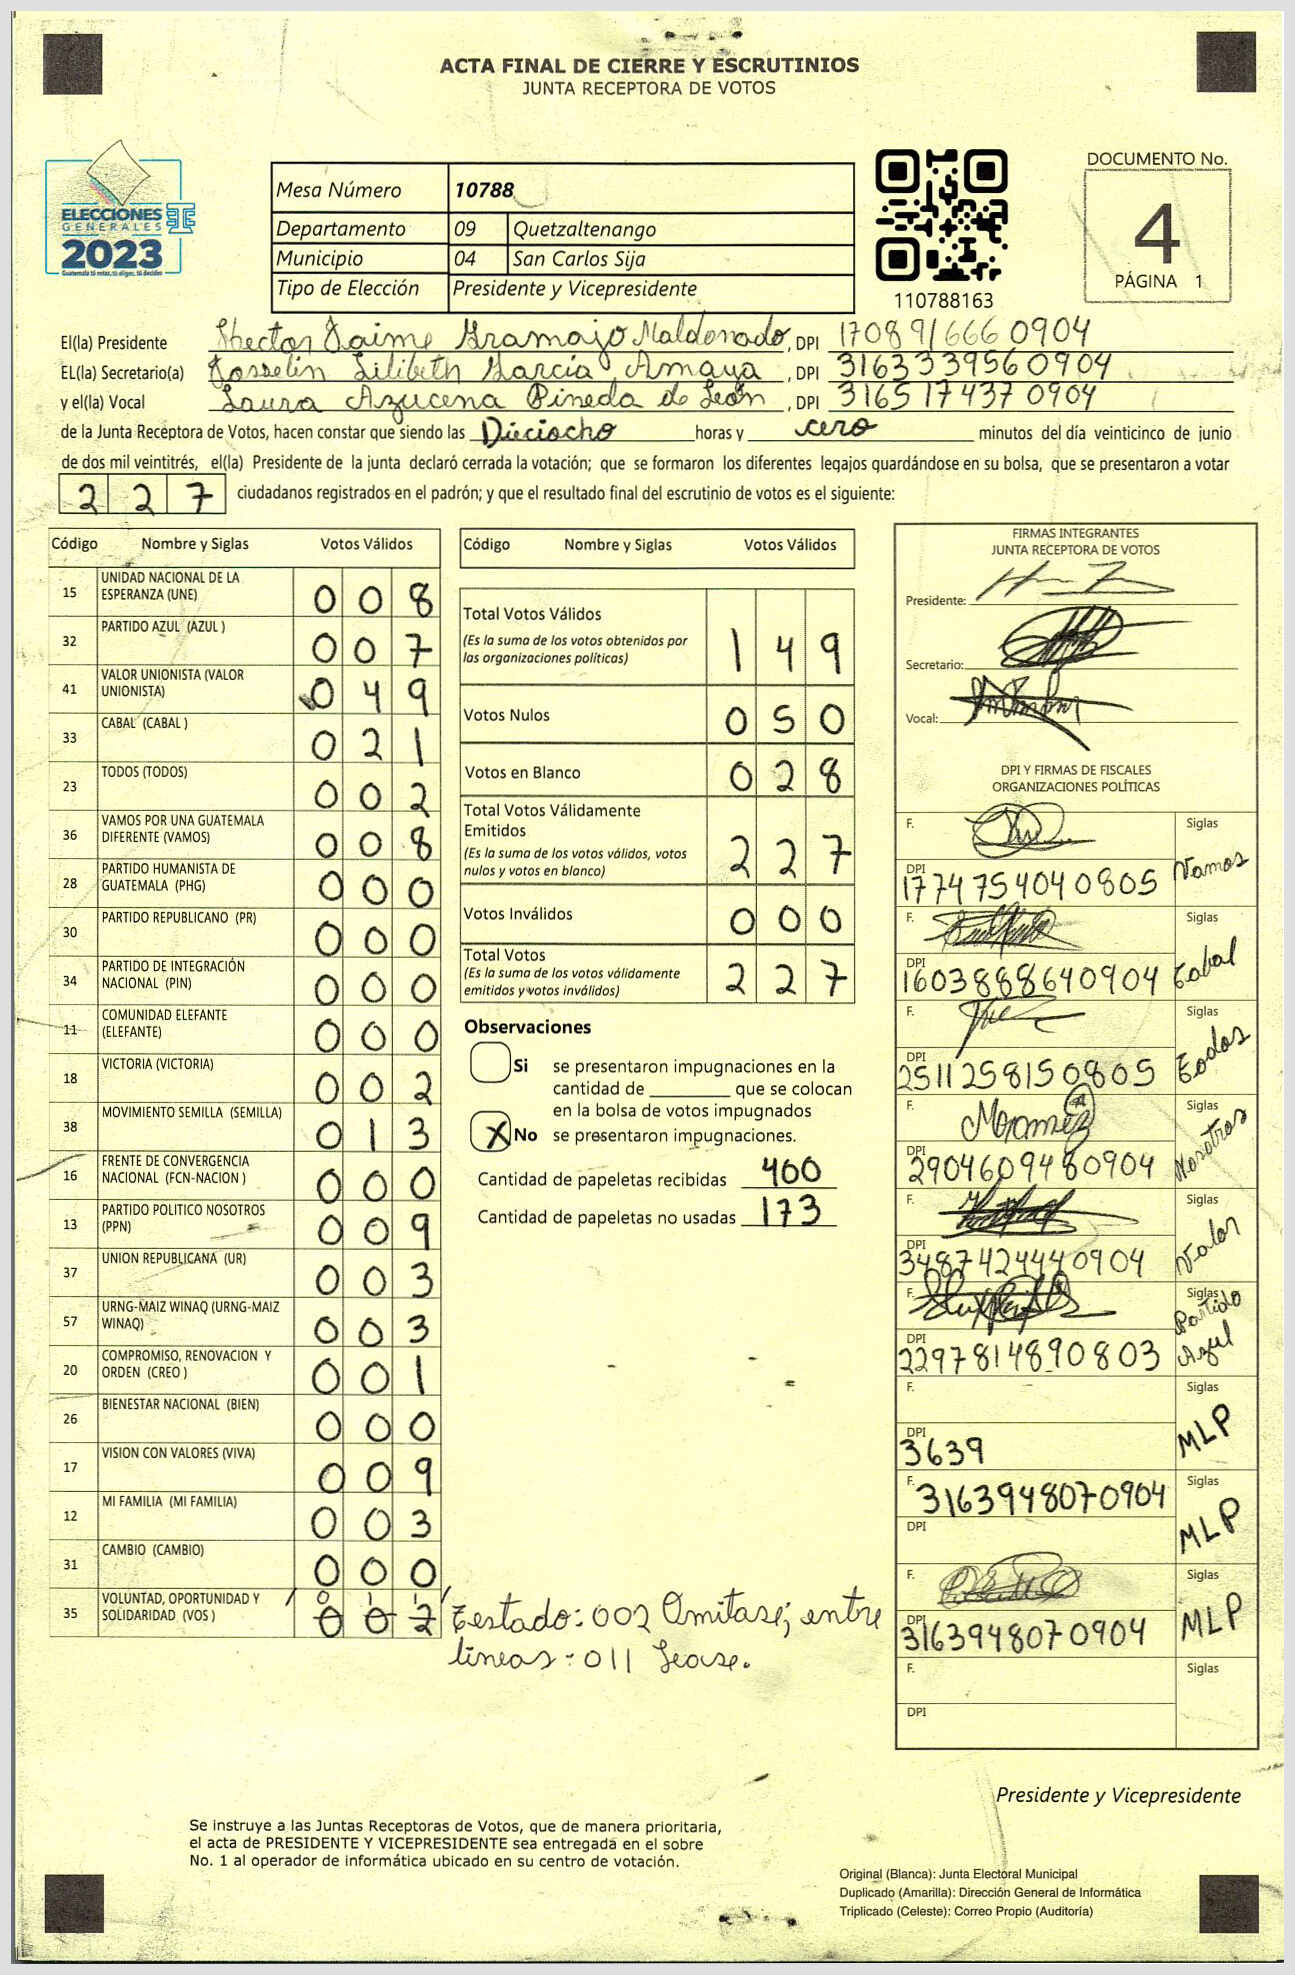 ACTA FINAL DE CIERRE Y ESCRUTINIOS
JUNTA RECEPTORA DE VOTOS
ELECCIONES
GENERALES
2023
Guatemala tú votas, tú eliges, tú decides
Mesa Número 10788
Departamento 09 Quetzaltenango
Municipio 04 San Carlos Sija
Tipo de Elección Presidente y Vicepresidente
110788163
DOCUMENTO No.
4
PÁGINA 1
El(la) Presidente Hector Jaime Gramajo Maldonado, DPI 1708916660904
EL(la) Secretario(a) Josselin Lilibeth Garcia Amaya, DPI 3163339560904
y el(la) Vocal Laura Azucena Pineda de León, DPI 3165174370904
de la Junta Receptora de Votos, hacen constar que siendo las Dieciocho horas y cero minutos del día veinticinco de junio
de dos mil veintitrés, el(la) Presidente de la junta declaró cerrada la votación; que se formaron los diferentes legajos guardándose en su bolsa, que se presentaron a votar
227 ciudadanos registrados en el padrón; y que el resultado final del escrutinio de votos es el siguiente:
Código Nombre y Siglas Votos Válidos
15 UNIDAD NACIONAL DE LA ESPERANZA (UNE) 008
32 PARTIDO AZUL (AZUL ) 007
41 VALOR UNIONISTA (VALOR UNIONISTA) 049
33 CABAL (CABAL ) 021
23 TODOS (TODOS) 002
36 VAMOS POR UNA GUATEMALA DIFERENTE (VAMOS) 008
28 PARTIDO HUMANISTA DE GUATEMALA (PHG) 000
30 PARTIDO REPUBLICANO (PR) 000
34 PARTIDO DE INTEGRACIÓN NACIONAL (PIN) 000
11 COMUNIDAD ELEFANTE (ELEFANTE) 000
18 VICTORIA (VICTORIA) 002
38 MOVIMIENTO SEMILLA (SEMILLA) 013
16 FRENTE DE CONVERGENCIA NACIONAL (FCN-NACION ) 000
13 PARTIDO POLITICO NOSOTROS (PPN) 009
37 UNION REPUBLICANA (UR) 003
57 URNG-MAIZ WINAQ (URNG-MAIZ WINAQ) 003
20 COMPROMISO, RENOVACION Y ORDEN (CREO ) 001
26 BIENESTAR NACIONAL (BIEN) 000
17 VISION CON VALORES (VIVA) 009
12 MI FAMILIA (MI FAMILIA) 003
31 CAMBIO (CAMBIO) 000
35 VOLUNTAD, OPORTUNIDAD Y SOLIDARIDAD (VOS ) 011 002
Testado: 002 Omitase; entre
lineas: 011 Lease.
Código Nombre y Siglas Votos Válidos
Total Votos Válidos 149
(Es la suma de los votos obtenidos por
las organizaciones políticas)
Votos Nulos 050
Votos en Blanco 028
Total Votos Válidamente
Emitidos 227
(Es la suma de los votos válidos, votos
nulos y votos en blanco)
Votos Inválidos 000
Total Votos 227
(Es la suma de los votos válidamente
emitidos y votos inválidos)
Observaciones
Si se presentaron impugnaciones en la
cantidad de ________ que se colocan
en la bolsa de votos impugnados
X No se presentaron impugnaciones.
Cantidad de papeletas recibidas 400
Cantidad de papeletas no usadas 173
FIRMAS INTEGRANTES
JUNTA RECEPTORA DE VOTOS
Presidente:
Secretario:
Vocal:
DPI Y FIRMAS DE FISCALES
ORGANIZACIONES POLÍTICAS
F. Siglas
DPI 1774754040805 Vamos
F. Siglas
DPI 1603888640904 Cabal
F. Siglas
DPI 2511258150805 Todos
F. Siglas
DPI 2904609480904 Nosotros
F. Siglas
DPI 3487424440904 Valor
F. Siglas
DPI 2297814890803 Partido Azul
F. Siglas
DPI 3639 MLP
F. 3163948070904 Siglas
DPI MLP
F. Siglas
DPI 3163948070904 MLP
F. Siglas
DPI
Presidente y Vicepresidente
Se instruye a las Juntas Receptoras de Votos, que de manera prioritaria,
el acta de PRESIDENTE Y VICEPRESIDENTE sea entregada en el sobre
No. 1 al operador de informática ubicado en su centro de votación.
Original (Blanca): Junta Electoral Municipal
Duplicado (Amarilla): Dirección General de Informática
Triplicado (Celeste): Correo Propio (Auditoría)